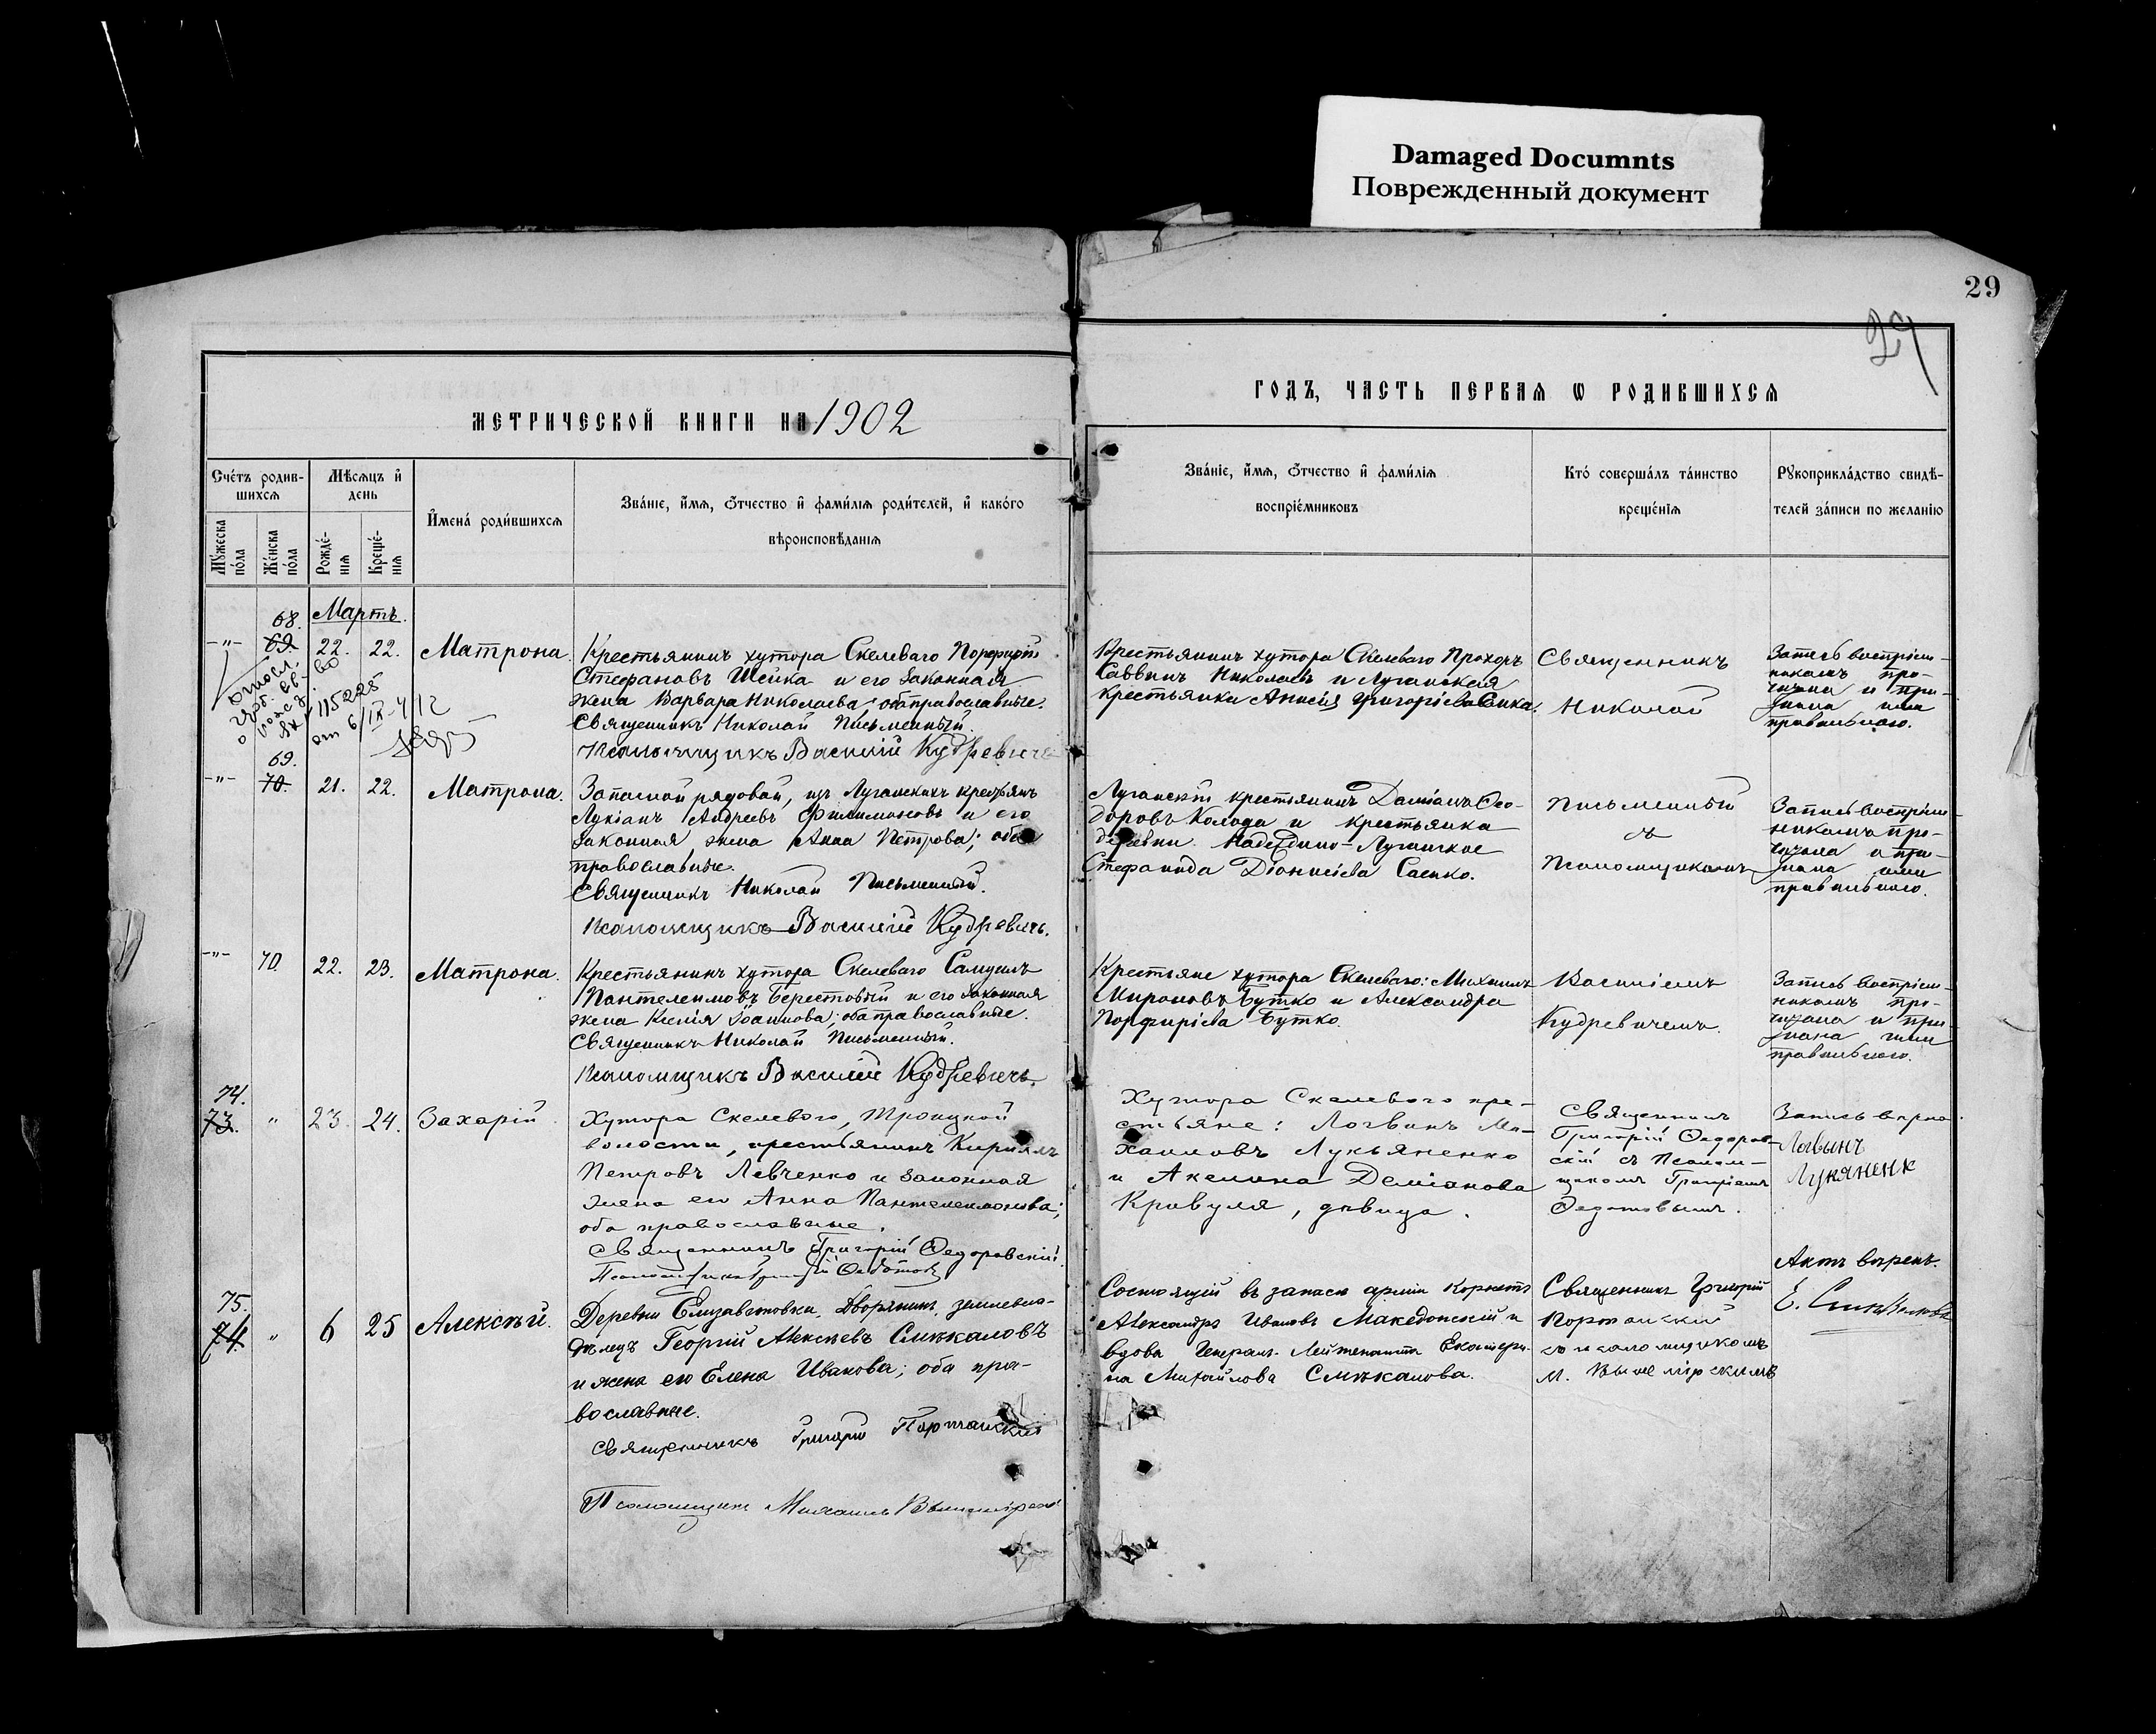 Damaged Documnts
Поврежденный документ
29
29
МЕТРИЧЕСКОЙ КНИГИ НА 1902
ГОДЪ, ЧАСТЬ ПЕРВАЯ Ѡ РОДИВШИХСЯ
Счéтъ родив-
шихся
Мꙋ́жеска
по́ла
Жéнска
по́ла
Мѣсяцъ и҆
день
Рождé-
нія
Крещé-
нія
И҆мена́ роди́вшихся
Зва́ніе, и҆́мя, ѻ҆́тчество и҆ фами́лія роди́телей, и҆ како́го
вѣроисповѣ́данія
Зва́ніе, и҆́мя, ѻ҆́тчество и҆ фами́лія
воспріе́мниковъ
Кто́ соверша́лъ та́инство
креще́нія
Рꙋкоприкла́дство свидѣ́-
телей за́писи по жела́нію
Мартъ.
68.
-"- 69. 22. 22. Матрона.
Крестьянинъ хутора Скелеваго Порфирій
Стефановъ Шейка и его законная
жена Варвара Николаева; оба православные.
Священникъ Николай Письменный.
Псаломщикъ Василій Кудревичъ
Крестьянинъ хутора Скелеваго Прохоръ
Саввинъ Николаев и Луганская
крестьянка Анисія Григоріева
Священникъ
Николай
Запись воспріем-
никамъ про-
читана и при-
знана ими
правильного.
115228
от 6/IX-412
69.
-"- 70. 21. 22. Матрона.
Запасной рядовой, изъ Луганскихъ крестьянъ
Лукіанъ Андреевъ Филимоновъ и его
законная жена Анна Петрова; оба
православные.
Священникъ Николай Письменный.
Псаломщикъ Василій Кудревичъ.
Луганскій крестьянинъ Даміанъ Ѳео-
доровъ Колода и крестьянка
деревни Надеждино-Луганской
Стефанида Діонисіева Саенко.
Письменный
съ
Псаломщикомъ
Запись воспріем-
никамъ про-
читана и при-
знана ими
правильного.
-"- 70. 22. 23. Матрона.
Крестьянинъ хутора Скелеваго Самуилъ
Пантелеимовъ Берестовый и его законная
жена Ксенія Іоаннова; оба православные.
Священникъ Николай Письменный.
Псаломщикъ Василій Кудревичъ.
Крестьяне хутора Скелеваго: Михаилъ
Мироновъ Бутко и Александра
Порфиріева Бутко.
Василіемъ
Кудревичемъ.
Запись воспріем-
никамъ про-
читана и при-
знана ими
правильного.
74.
73. " 23. 24. Захарій.
Хутора Скелевого, Троицкой
волости, крестьянинъ Кириллъ
Петровъ Левченко и законная
жена его Анна Пантелеимонова;
оба православные.
Священникъ Григорій Ѳедоровскій.
Псаломщикъ Григорій Ѳедотовъ
Хутора Скелевого кре-
стьяне: Логвинъ Ми-
хаиловъ Лукьяненко
и Акелина Деміанова
Кравуля, дѣвица.
Священникъ
Григорій Ѳедоров-
скій съ Псалом-
щикомъ Григоріемъ
Ѳедотовымъ.
Запись вѣрна
Логвынъ
Лукяненк
75.
74. " 6 25 Алексѣй.
Деревни Елизаветовки, Дворянинъ, землевла-
дѣлецъ Георгій Алексѣевъ Смѣкаловъ
и жена его Елена Иванова; оба пра-
вославные.
Священникъ Григорій Портанскій
Псаломщикъ Михаилъ
Состоящій въ запасѣ арміи Корнетъ
Александръ Ивановъ Македонскій и
вдова Генералъ-Лейтенанта Екатери-
на Михайлова Смѣкалова.
Священникъ Григорій
Портанскій
съ псаломщикомъ
М.
Актъ вѣренъ.
Е. Смѣкалова